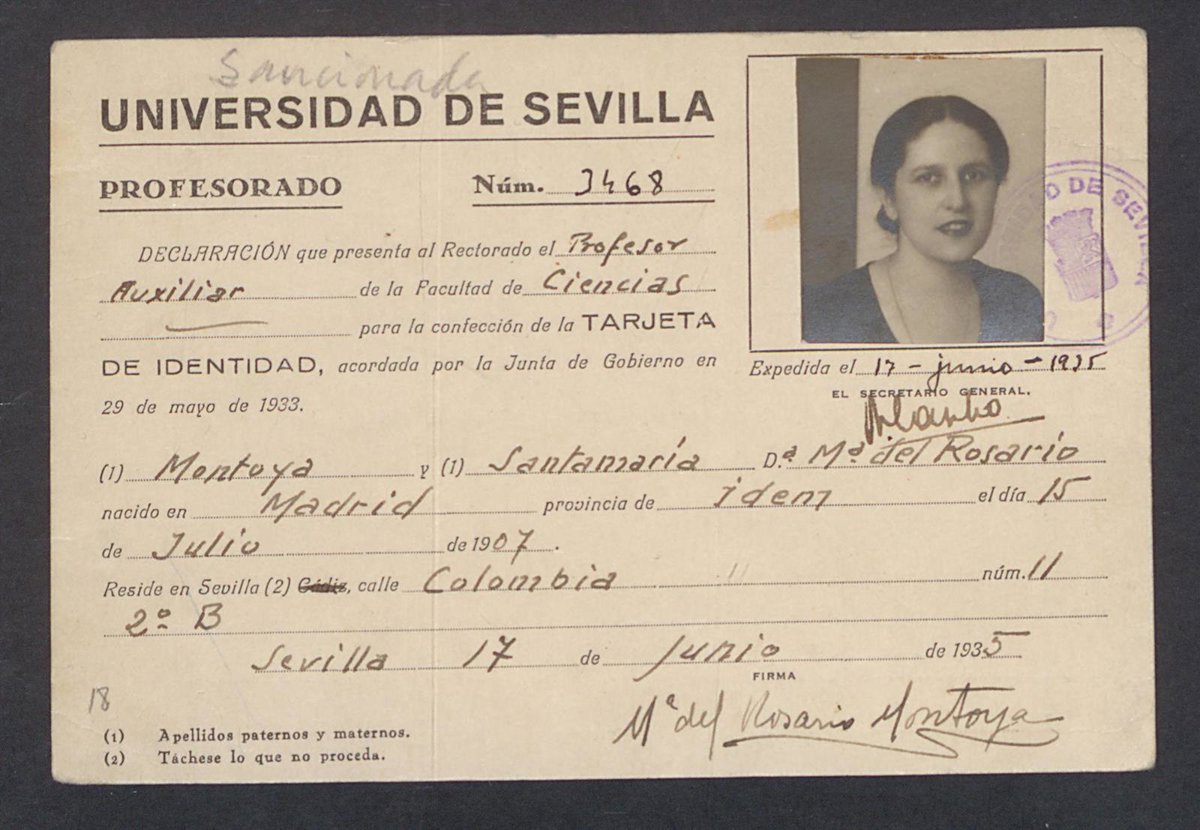 Sancionada
UNIVERSIDAD DE SEVILLA
PROFESORADO
Núm. 3468
DECLARACIÓN que presenta al Rectorado el Profesor
Auxiliar de la Facultad de Ciencias
para la confección de la TARJETA
DE IDENTIDAD, acordada por la Junta de Gobierno en
29 de mayo de 1933.
DE SEVILLA
Expedida el 17 - junio - 1935
EL SECRETARIO GENERAL,
(1) Montoya y (1) Santamaría D.ª Mª del Rosario
nacido en Madrid provincia de idem el día 15
de Julio de 1907.
Reside en Sevilla (2) Cádiz, calle Colombia núm. 11
2º B
Sevilla 17 de Junio de 1935
FIRMA
Mª del Rosario Montoya
18
(1) Apellidos paternos y maternos.
(2) Táchese lo que no proceda.